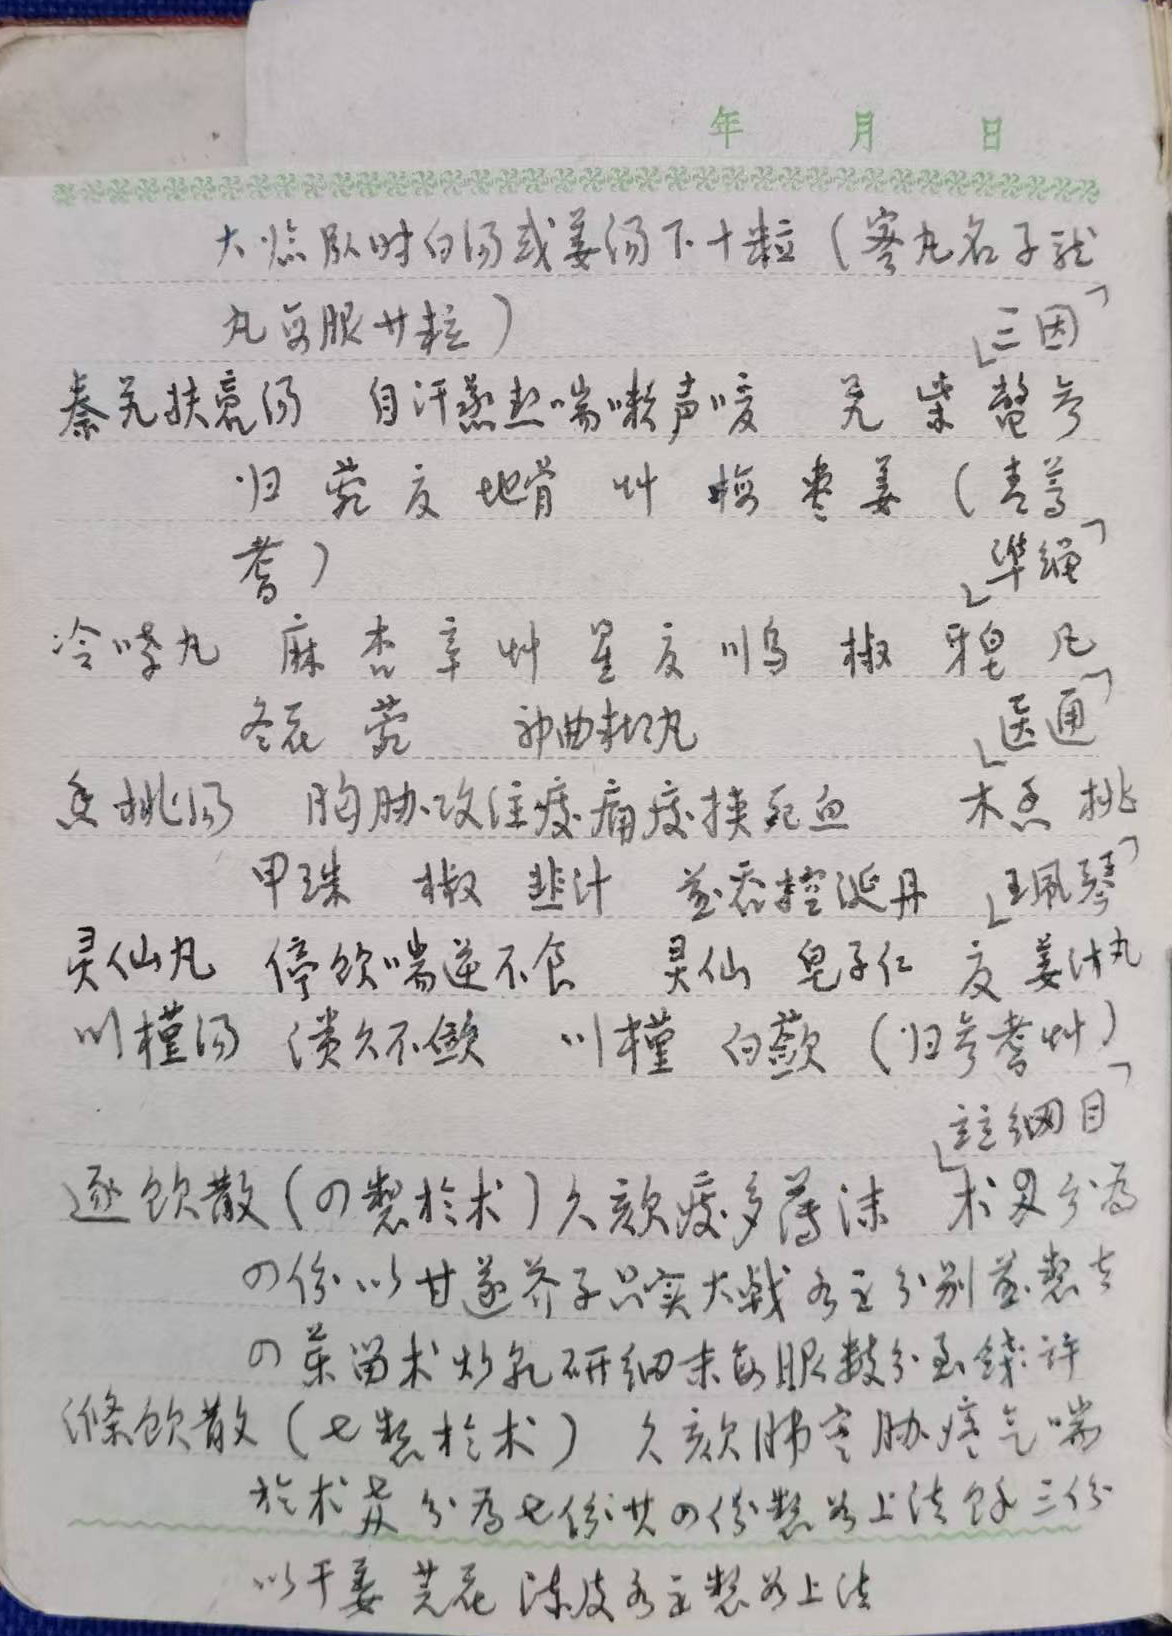 年 月 日
大 临卧时白汤或姜汤下十粒（寒丸名子龙
丸每服廿粒）
「三因」
秦艽扶羸汤 自汗蒸热喘嗽声嗄 艽 柴 鳖 参
归 菀 夏 地骨 草 梅 枣 姜（青蒿
耆）
「準绳」
冷哮丸 麻 杏 辛 草 星 夏 川乌 椒 牙皂 凡
冬花 菀 神曲糊丸
「医通」
香桃汤 胸胁攻注痰痛痰挟死血 木香 桃
甲珠 椒 韭汁 並吞控涎丹
「王珮琴」
灵仙丸 停饮喘逆不食 灵仙 皂子仁 夏 姜汁丸
川槿汤 溃久不敛 川槿 白蔹（归参耆草）
細目」
逐饮散（四製於术）久咳痰多薄沫 术 分为
四份以甘遂芥子只实大戟各 分别並製去
四药留术炒乾研细末每服数分至钱许
滌饮散（七製於术） 久咳肺寒胁疼气喘
於术 分为七份其四份製如上法余三份
以干姜 芫花 陈皮各 製如上法